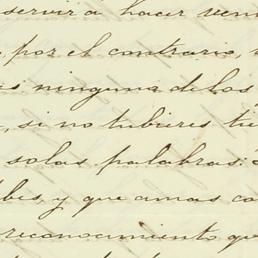 servir a hacer ven
por el contrario,
ninguna de los
, si no tubieres tie
solas palabras:
bes, y que amas co
reconocimiento que